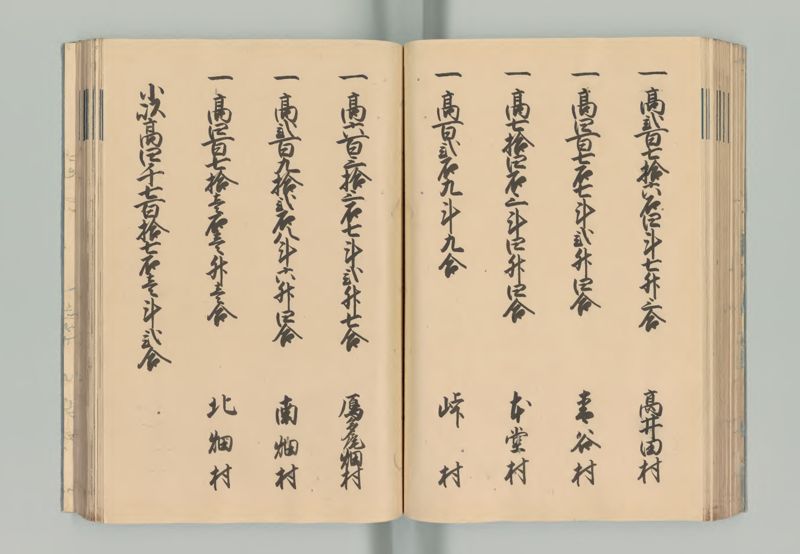 一 高弐百七拾六石四斗七升三合 高井田村
一 高四百七石七斗弐升四合 青谷村
一 高七拾四石三斗四升四合 本堂村
一 高百弐石九斗九合 峠村
一 高六百三拾三石七斗弐升七合 鴈多尾畑村
一 高弐百九拾弐石八斗六升四合 南畑村
一 高四百七拾壱石壱升壱合 北畑村
小以高四千七百拾七石壱斗弐合